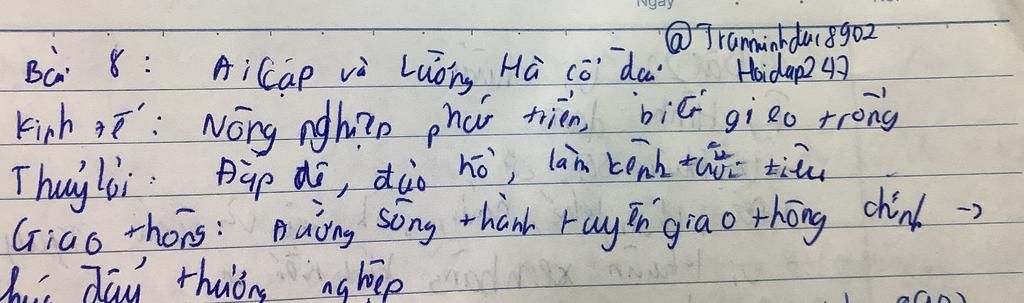 Ngày
@Tranminhduc8902
Bài 8: Ai Cập và Lưỡng Hà cổ đại Hoidap247
Kinh tế: Nông nghiệp phát triển, biết gieo trồng
Thuỷ lợi: Đắp đê, đào hồ, làm kênh tưới tiêu
Giao thông: Đường sông thành tuyến giao thông chính →
đẩy thương nghiệp